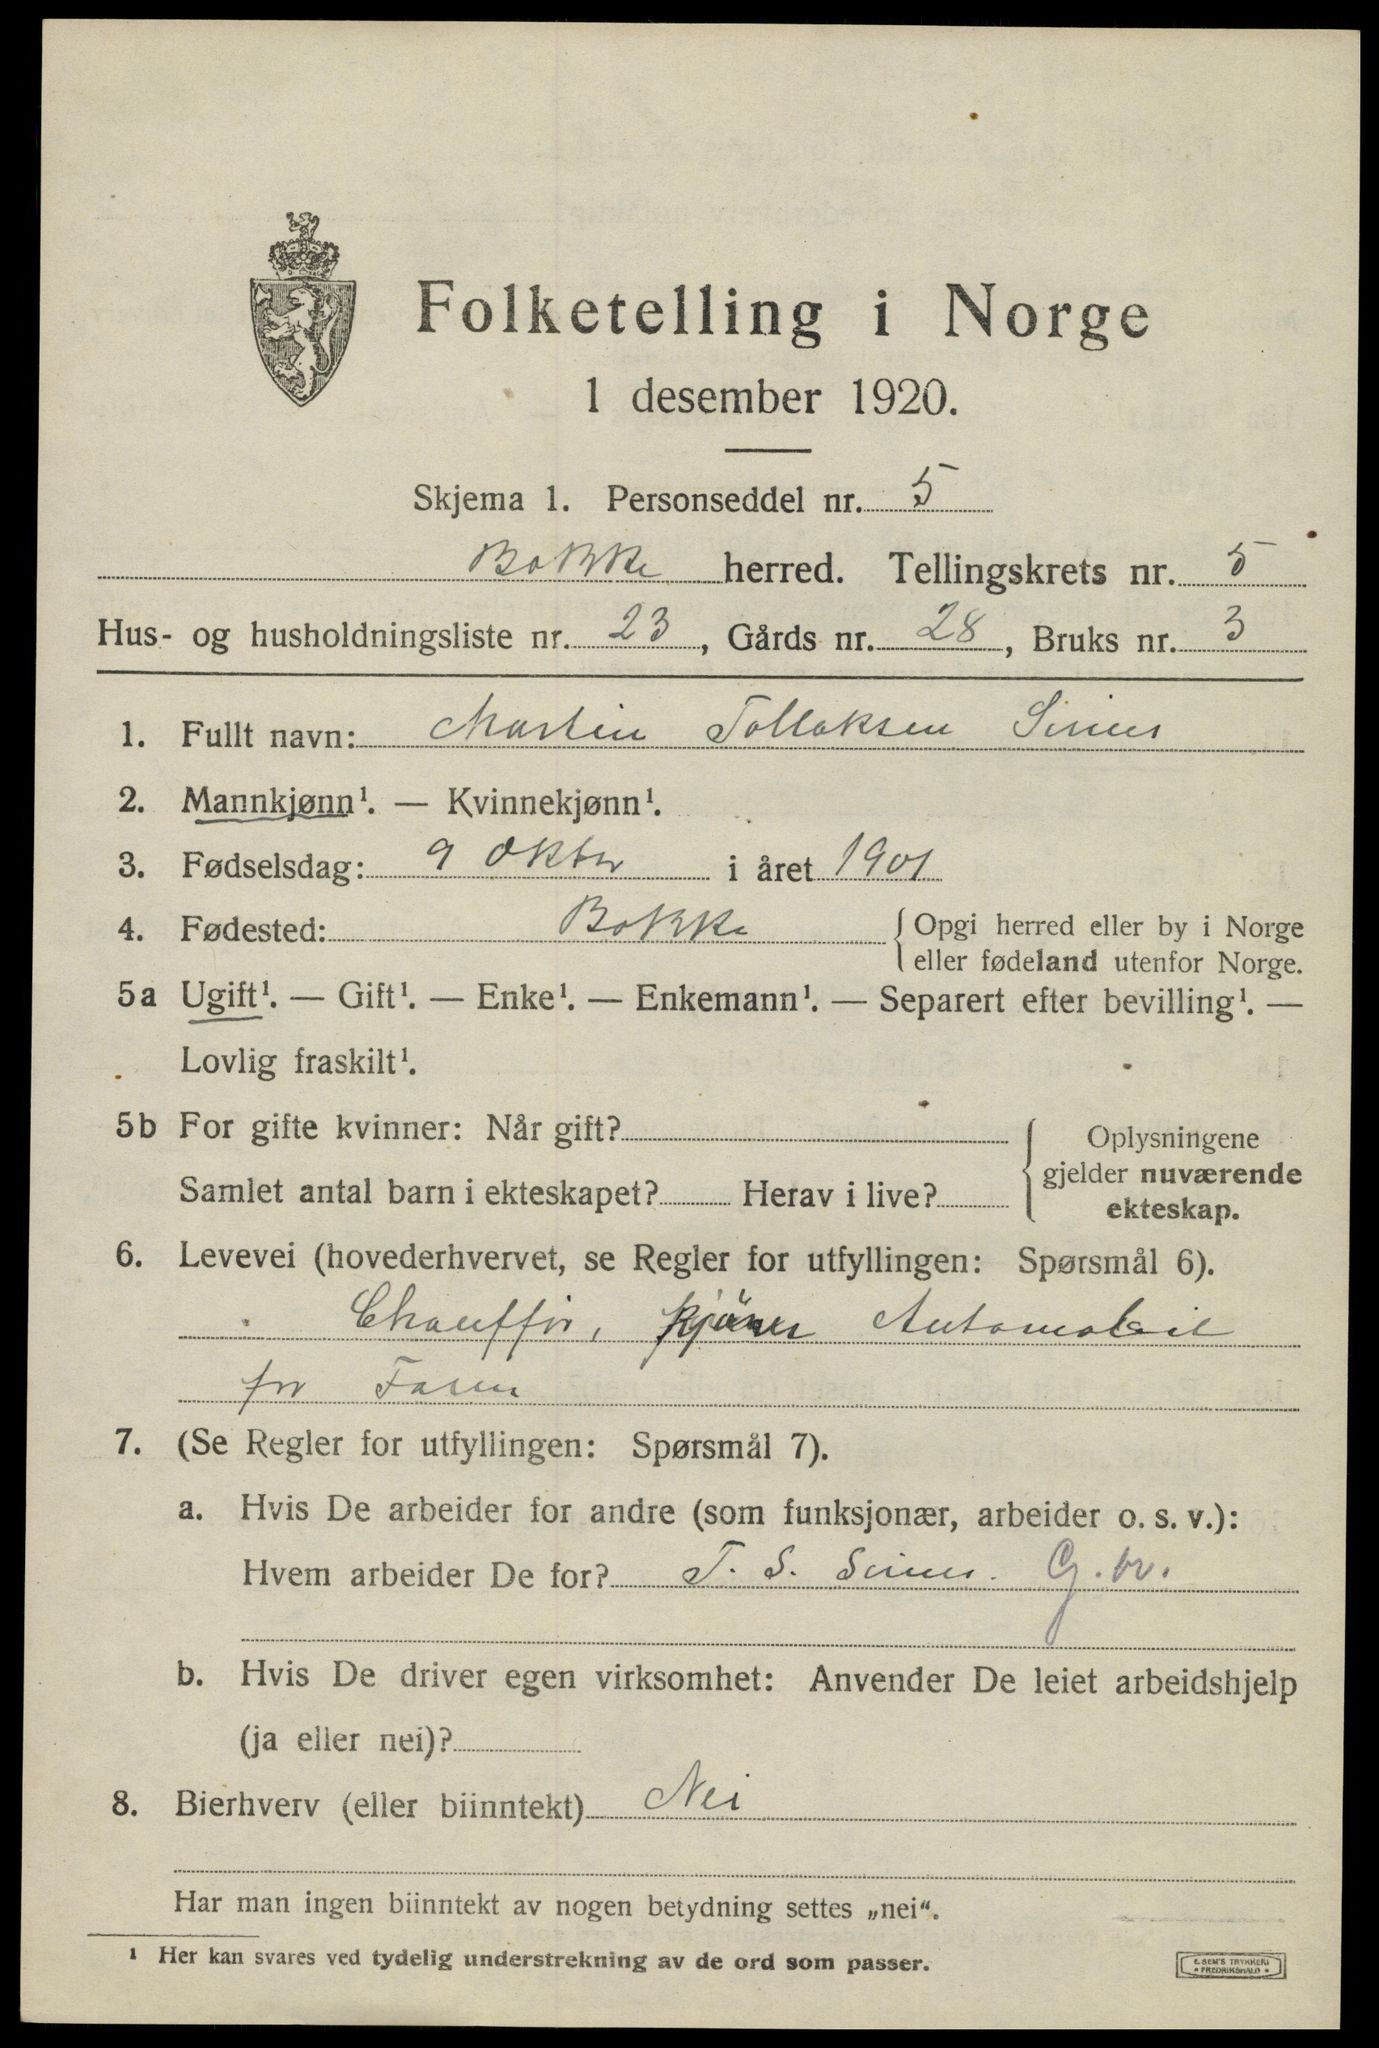 Folketelling i Norge
1 desember 1920.
Skjema 1. Personseddel nr. 5
Bakke herred. Tellingskrets nr. 5
Hus- og husholdningsliste nr. 23, Gårds nr. 28, Bruks nr. 3
1. Fullt navn: Martin Tollaksen Sirnes
2. Mannkjønn¹. — Kvinnekjønn¹.
3. Fødselsdag: 9 Oktbr i året 1901
4. Fødested: Bakke { Opgi herred eller by i Norge
eller fødeland utenfor Norge.
5a Ugift¹. — Gift¹. — Enke¹. — Enkemann¹. — Separert efter bevilling¹. —
Lovlig fraskilt¹.
5b For gifte kvinner: Når gift?
Samlet antal barn i ekteskapet? Herav i live?
Oplysningene
gjelder nuværende
ekteskap.
6. Levevei (hovederhvervet, se Regler for utfyllingen: Spørsmål 6).
Chauffør, kjører Automobil
for Faren
7. (Se Regler for utfyllingen: Spørsmål 7).
a. Hvis De arbeider for andre (som funksjonær, arbeider o. s. v.):
Hvem arbeider De for? T. S. Sirnes. G.br.
b. Hvis De driver egen virksomhet: Anvender De leiet arbeidshjelp
(ja eller nei)?
8. Bierhverv (eller biinntekt) Nei
Har man ingen biinntekt av nogen betydning settes „nei“.
¹ Her kan svares ved tydelig understrekning av de ord som passer.
E. SEM'S TRYKKERI
FREDRIKSHALD